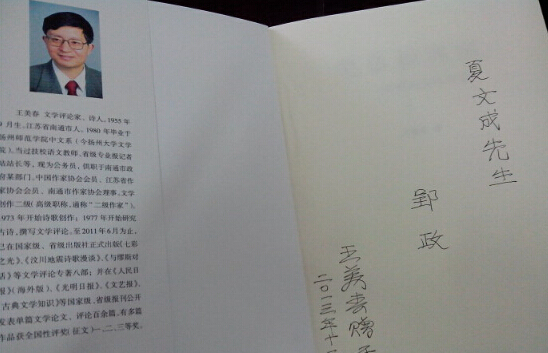 王美春 文学评论家、诗人，1955年
9月生，江苏省南通市人，1980年毕业于
扬州师范学院中文系（今扬州大学文学
院）。当过技校语文教师、省级专业报记者
站站长等，现为公务员，供职于南通市政
府某部门。中国作家协会会员、江苏省作
家协会会员、南通市作家协会理事，文学
创作二级（高级职称，通称“二级作家”）。
1973年开始诗歌创作；1977年开始研究
古诗，撰写文学评论，至2011年6月为止，
已在国家级、省级出版社正式出版《七彩
之光》、《汶川地震诗歌漫谈》、《与缪斯对
话》等文学评论专著八部；并在《人民日
报》（海外版）、《光明日报》、《文艺报》、
《古典文学知识》等国家级、省级报刊公开
发表单篇文学论文、评论百余篇，有多篇
作品获全国性评奖（征文）一、二、三等奖。
夏文成先生
郢政
王美春赠
二〇一三年十